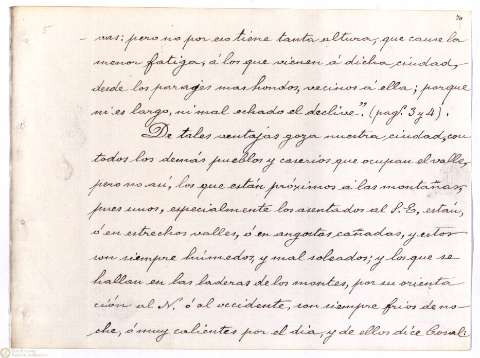 vas; pero no por eso tiene tanta altura, que cause la
menor fatiga, á los que vienen á dicha ciudad,
desde los parajes mas hondos, vecinos á ella; porque
ni es largo, ni mal echado el declive". (pags. 3 y 4).
De tales ventajas goza nuestra ciudad, con
todos los demás pueblos y caserios que ocupan el valle,
pero no así, los que están próximos á las montañas,
pues unos, especialmente los asentados al S. E., están,
ó en estrechos valles, ó en angostas cañadas, y estos
son siempre húmedos, y mal soleados; y los que se
hallan en las laderas de los montes, por su orienta
ción al N. ó al occidente, son siempre frios de no-
che, ó muy calientes por el dia, y de ellos dice Casali